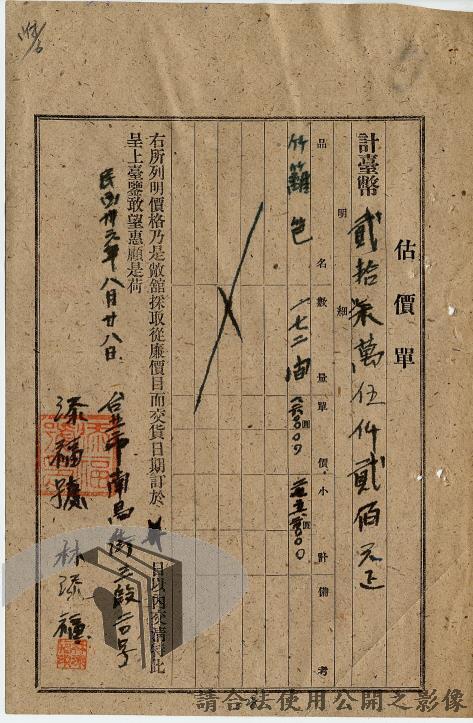 估價單
計臺幣 貳拾柒萬伍仟貳佰元正
明細
品名 數量 單價 小計 備考
竹籬笆 一七二間 一六〇〇〇 二七五二〇〇
右所列明價格乃是敝舘採取從廉價目而交貨日期訂於 日以內交清 此
呈上臺鑒敢望惠顧是荷
民國卅六年八月廿八日
台北市南昌街三段 号
添福號 林添福
請合法使用公開之影像